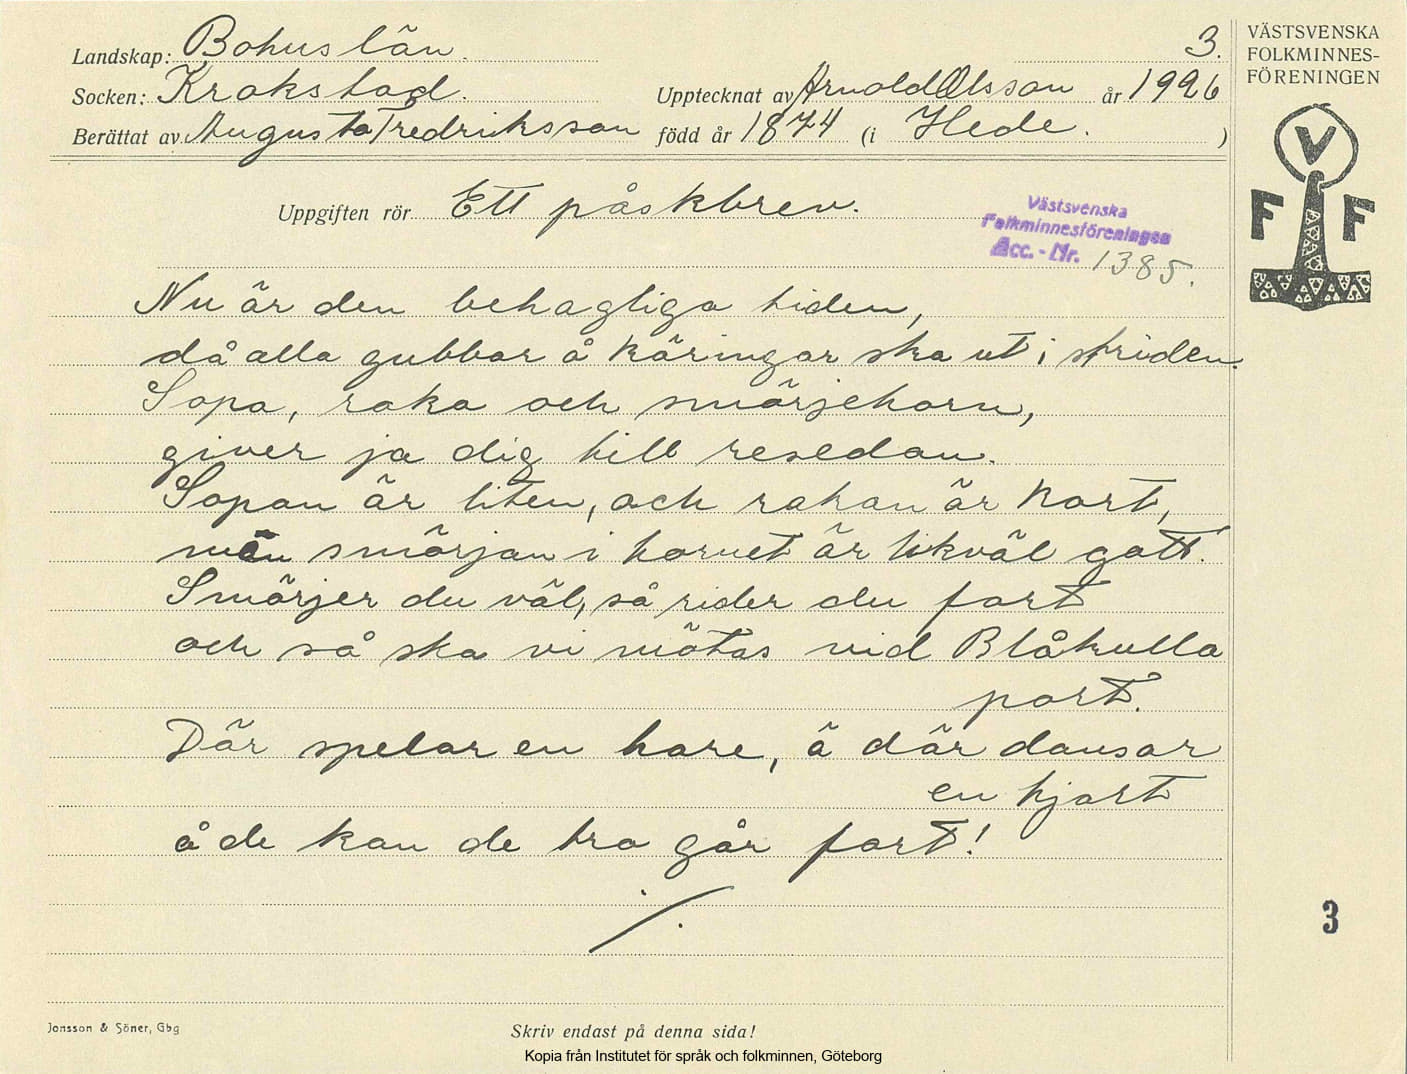 Landskap: Bohuslän.
3.
Socken: Krokstad.
Upptecknat av Arnold Olsson år 1926
Berättat av Augusta Fredriksson född år 1874 (i Hede. )
VÄSTSVENSKA
FOLKMINNES-
FÖRENINGEN
V
F F
Uppgiften rör Ett påskbrev.
Västsvenska
Folkminnesföreningen
Acc. - Nr. 1385.
Nu är den behagliga tiden,
då alla gubbar å käringar ska ut i striden.
Sopa, raka och smörjehorn,
giver ja dig till resedan.
Sopan är liten, och rakan är kort,
män smörjan i hornet är likväl gott.
Smörjer du väl, så rider du fort
och så ska vi mötas vid Blåkulla
port.
Där spelar en hare, å där dansar
en hjort
å de kan de tro går fort!
/.
3
Jonsson & Söner, Gbg
Skriv endast på denna sida!
Kopia från Institutet för språk och folkminnen, Göteborg